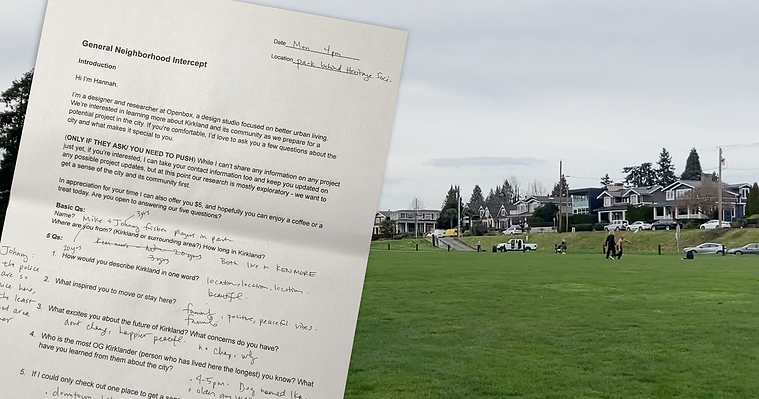 Date Mon 4pm
General Neighborhood Intercept
Location park behind Heritage Soci.
Introduction
Hi I'm Hannah.
I'm a designer and researcher at Openbox, a design studio focused on better urban living.
We're interested in learning more about Kirkland and its community as we prepare for a
potential project in the city. If you're comfortable, I'd love to ask you a few questions about the
city and what makes it special to you.
(ONLY IF THEY ASK/ YOU NEED TO PUSH) While I can't share any information on any project
just yet, if you're interested, I can take your contact information too and keep you updated on
any possible project updates, but at this point our research is mostly exploratory - we want to
get a sense of the city and its community first.
In appreciation for your time I can also offer you $5, and hopefully you can enjoy a coffee or a
treat today. Are you open to answering our five questions?
Basic Qs:
Name? Mike + Johnny frisbee players in park
Where are you from? (Kirkland or surrounding area?) How long in Kirkland?
5 Qs:
Both live in KENMORE
1. How would you describe Kirkland in one word?
location, location, location.
beautiful.
Johnny:
the police
are so
nice here,
the least
2. What inspired you to move or stay here?
family, positive, peaceful vibes.
family
3. What excites you about the future of Kirkland? What concerns do you have?
dont change, happier peaceful.
4. Who is the most OG Kirklander (person who has lived here the longest) you know? What
have you learned from them about the city?
• 4-5pm. Dog named Ike.
5. If I could only check out one place to get a
• downtown